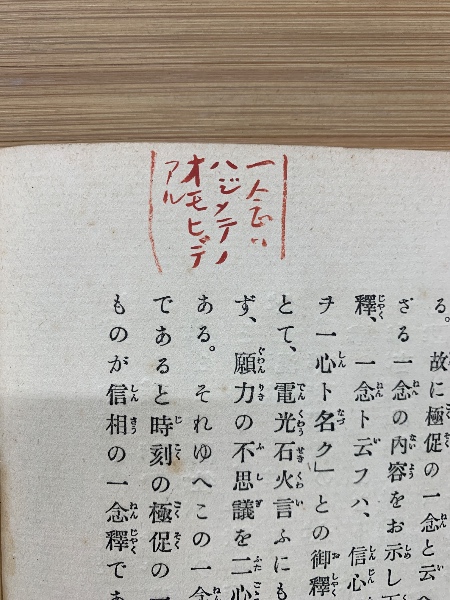 一念ハ
ハジメテノ
オモヒデ
アル
る。故に極促の一念と云へ
ざる一念の内容をお示し下
釋、一念ト云フハ、信心
ヲ一心ト名ク」との御釋
とて、電光石火言ふにも
ず、願力の不思議を二心
ある。それゆへこの一念
であると時刻の極促の一
ものが信相の一念釋であ